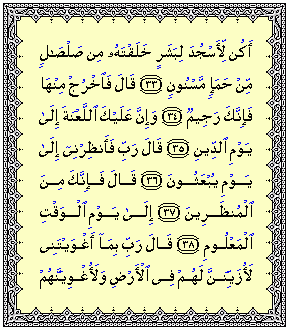 أَكُن لِّأَسْجُدَ لِبَشَرٍ خَلَقْتَهُۥ مِن صَلْصَٰلٍ
مِّنْ حَمَإٍ مَّسْنُونٍ ﴿٣٣﴾ قَالَ فَٱخْرُجْ مِنْهَا
فَإِنَّكَ رَجِيمٌ ﴿٣٤﴾ وَإِنَّ عَلَيْكَ ٱللَّعْنَةَ إِلَىٰ
يَوْمِ ٱلدِّينِ ﴿٣٥﴾ قَالَ رَبِّ فَأَنظِرْنِىٓ إِلَىٰ
يَوْمِ يُبْعَثُونَ ﴿٣٦﴾ قَالَ فَإِنَّكَ مِنَ
ٱلْمُنظَرِينَ ﴿٣٧﴾ إِلَىٰ يَوْمِ ٱلْوَقْتِ
ٱلْمَعْلُومِ ﴿٣٨﴾ قَالَ رَبِّ بِمَآ أَغْوَيْتَنِى
لَأُزَيِّنَنَّ لَهُمْ فِى ٱلْأَرْضِ وَلَأُغْوِيَنَّهُمْ